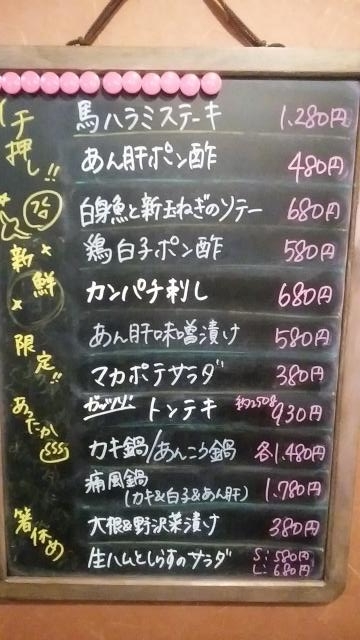 イチ押し!!
新鮮
限定!!
あったかい
箸休め
馬ハラミステーキ 1,280円
あん肝ポン酢 480円
白身魚と新玉ねぎのソテー 680円
鶏白子ポン酢 580円
カンパチ刺し 680円
あん肝味噌漬け 580円
マカポテサラダ 380円
ガッツリ! トンテキ 約250g 930円
カキ鍋/あんこう鍋 各1,480円
痛風鍋 1,780円
(カキ&白子&あん肝)
大根&野沢菜漬け 380円
生ハムとしらすのサラダ S:580円
L:680円